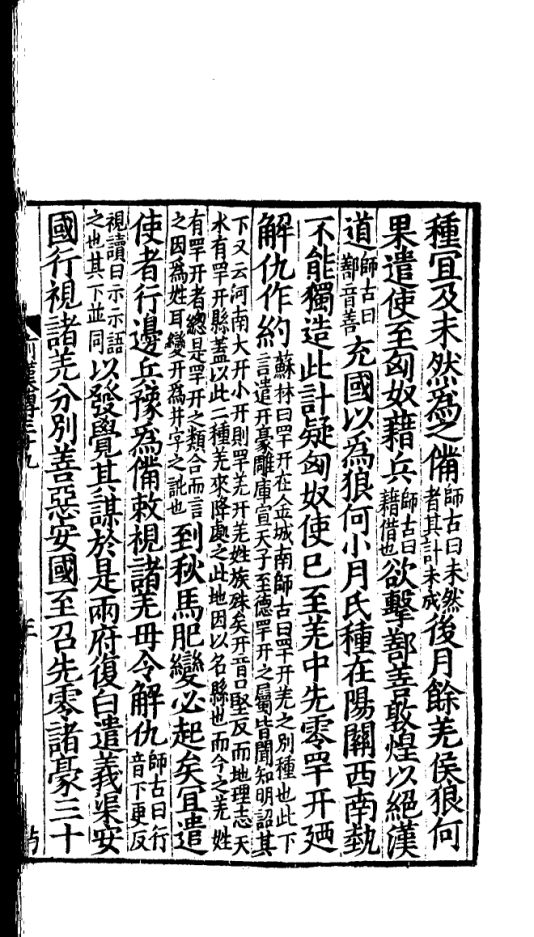 種宜及未然為之備師古曰未然者其計未成後月餘羌侯狼何
果遣使至匈奴藉兵師古曰藉借也欲擊鄯善敦煌以絕漢
道師古曰鄯音善充國以爲狼何小月氏種在陽關西南埶
不能獨造此計疑匈奴使巳至羌中先零罕幵廼
解仇作約蘇林曰罕幵在金城南師古曰罕幵羌之別種也此下言遣幵豪雕庫宣天子至德罕幵之屬皆聞知明詔其
下又云河南大幵小幵則罕羌幵羌姓族殊矣幵音口堅反而地理志天水有罕幵縣蓋以此二種羌來降處之此地因以名縣也而今之羌姓
有罕幵者總是罕幵之類合而言之因爲姓耳變幵爲井字之訛也到秋馬肥變必起矣宜遣
使者行邊兵豫爲備敕視諸羌毋令解仇師古曰行音下更反
視讀曰示示語之也其下並同以發覺其謀於是兩府復白遣義渠安
國行視諸羌分別善惡安國至召先零諸豪三十